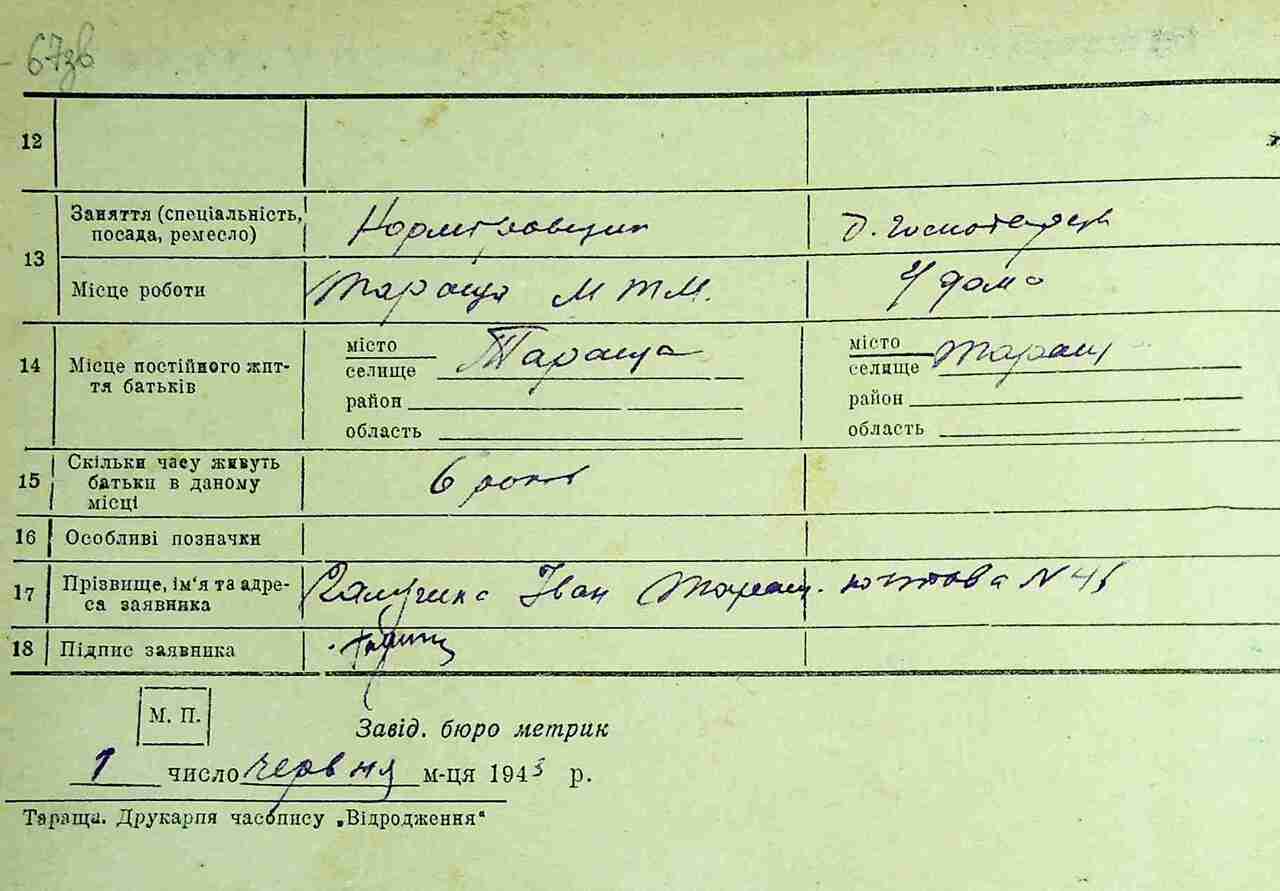 67зв
12
13 Заняття (спеціальність, посада, ремесло) Нормировщик Д. Господарці
Місце роботи Тараща М Т М. У дома
14 Місце постійного життя батьків
місто Тараща місто Таращ
селище селище
район район
область область
15 Скільки часу живуть батьки в даному місці 6 років
16 Особливі позначки
17 Прізвище, ім'я та адреса заявника Іван Таращ. N 45
18 Підпис заявника
М. П.
Завід. бюро метрик
1 число червня м-ця 1943 р.
Тараща. Друкарня часопису „Відродження"